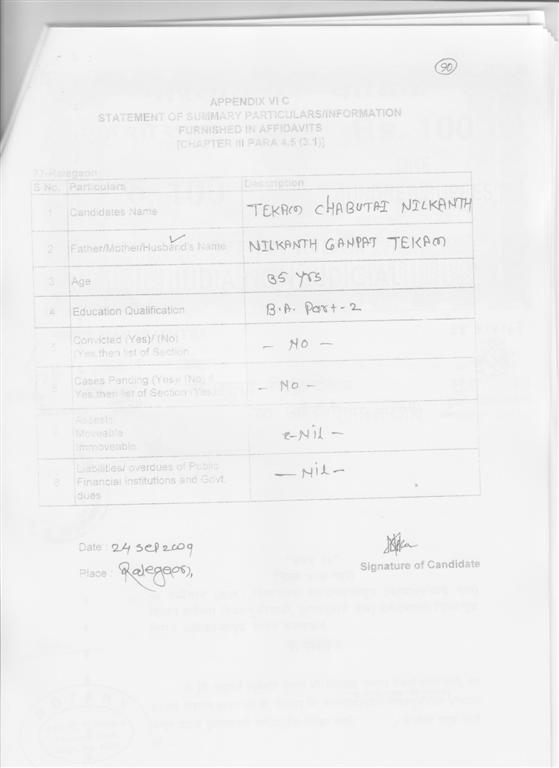 90
APPENDIX VI C
STATEMENT OF SUMMARY PARTICULARS/INFORMATION
FURNISHED IN AFFIDAVITS
[CHAPTER III PARA 4.5 (3.1)]
77-Ralegaon
S No. Particulars Description
1 Candidates Name TEKAM CHABUTAI NILKANTH
2 Father/Mother/Husband's Name NILKANTH GANPAT TEKAM
3 Age 35 yrs
4 Education Qualification B.A. Part-2
Convicted (Yes)/ (No) - NO -
(Yes,then list of Section
Cases Pending (Yes)/ (No) - NO -
Yes,then list of Section (Yes)
Assests
Moveable - Nil -
Immoveable
8 Liabilities/ overdues of Public - Nil -
Financial institutions and Govt.
dues
Date : 24 Sep 2009
Place : Ralegaon,
Signature of Candidate